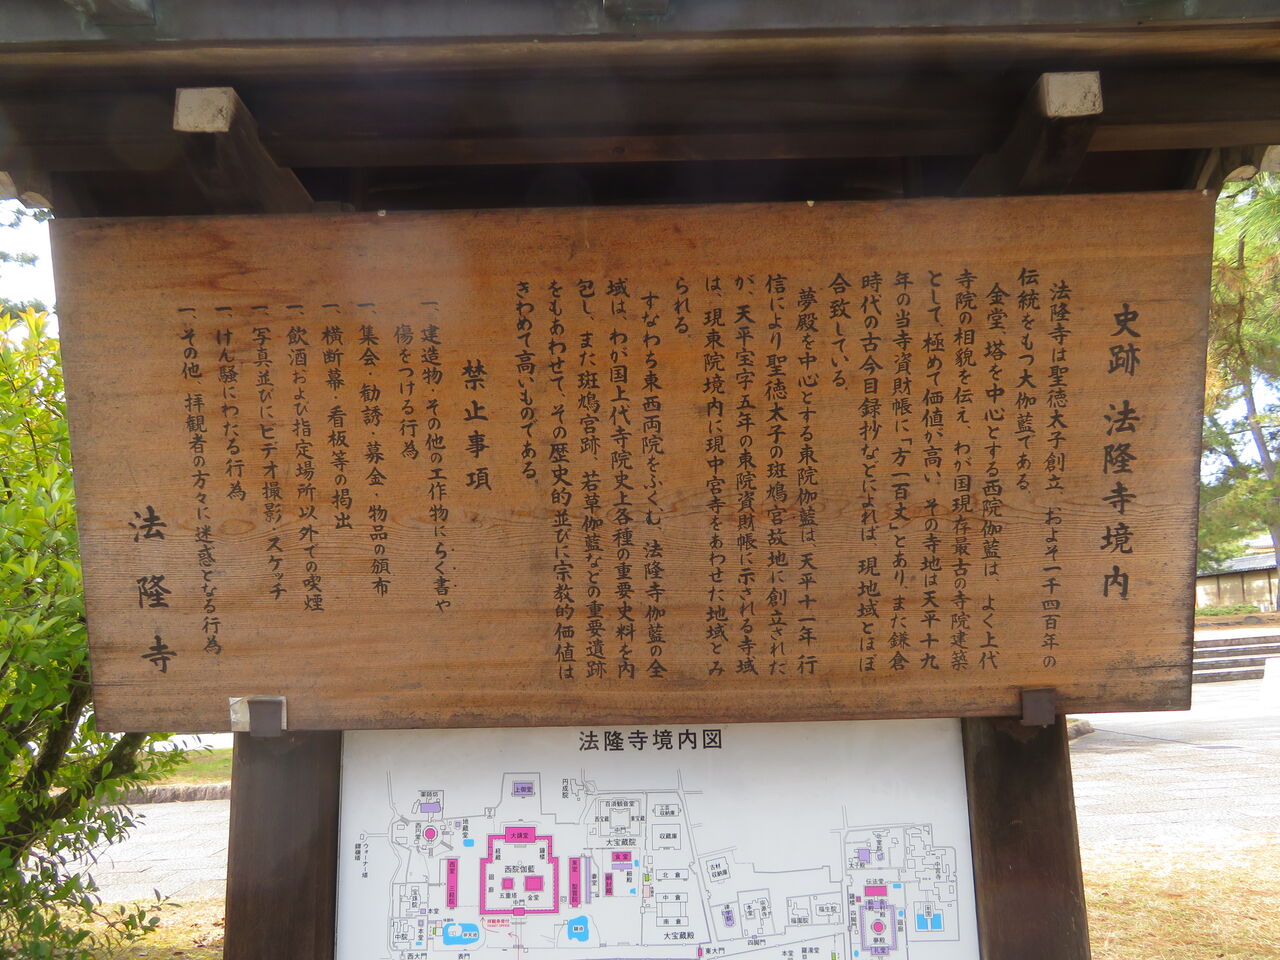 史跡 法隆寺境内
法隆寺は聖徳太子創立、およそ一千四百年の
伝統をもつ大伽藍である。
金堂、塔を中心とする西院伽藍は、よく上代
寺院の相貌を伝え、わが国現存最古の寺院建築
として、極めて価値が高い。その寺地は天平十九
年の当寺資財帳に「方一百丈」とあり、また鎌倉
時代の古今目録抄などによれば、現地域とほぼ
合致している。
夢殿を中心とする東院伽藍は、天平十一年行
信により聖徳太子の斑鳩宮故地に創立された
が、天平宝字五年の東院資財帳に示される寺域
は、現東院境内に現中宮寺をあわせた地域とみ
られる。
すなわち東西両院をふくむ、法隆寺伽藍の全
域は、わが国上代寺院史上各種の重要史料を内
包し、また斑鳩宮跡、若草伽藍などの重要遺跡
をもあわせて、その歴史的並びに宗教的価値は
きわめて高いものである。
禁止事項
一、建造物・その他の工作物にらく書や
傷をつける行為
一、集会・勧誘・募金・物品の頒布
一、横断幕・看板等の掲出
一、飲酒および指定場所以外での喫煙
一、写真並びにビデオ撮影・スケッチ
一、けん騒にわたる行為
一、その他、拝観者の方々に迷惑となる行為
法隆寺
法隆寺境内図
上御堂
円成院
薬師坊
西円堂
地蔵堂
ウォーナー塔
大講堂
経蔵
鐘楼
西院伽藍
廻廊
五重塔
金堂
中門
西室
三経院
東室
聖霊院
妻室
綱封蔵
食堂
細殿
百済観音堂
西宝蔵
東宝蔵
中門
大宝蔵院
工芸収納庫
収蔵庫
北倉
中倉
南倉
大宝蔵殿
古材収納庫
宝珠院
本堂
中院
本堂
西大門
表門
弁天池
鏡池
東大門
律学院
本堂
宗源寺
四脚門
福園院
福生院
本堂
太子殿
北室院
中宮寺
伝法堂
鐘楼
四脚門
廻廊
夢殿
礼堂